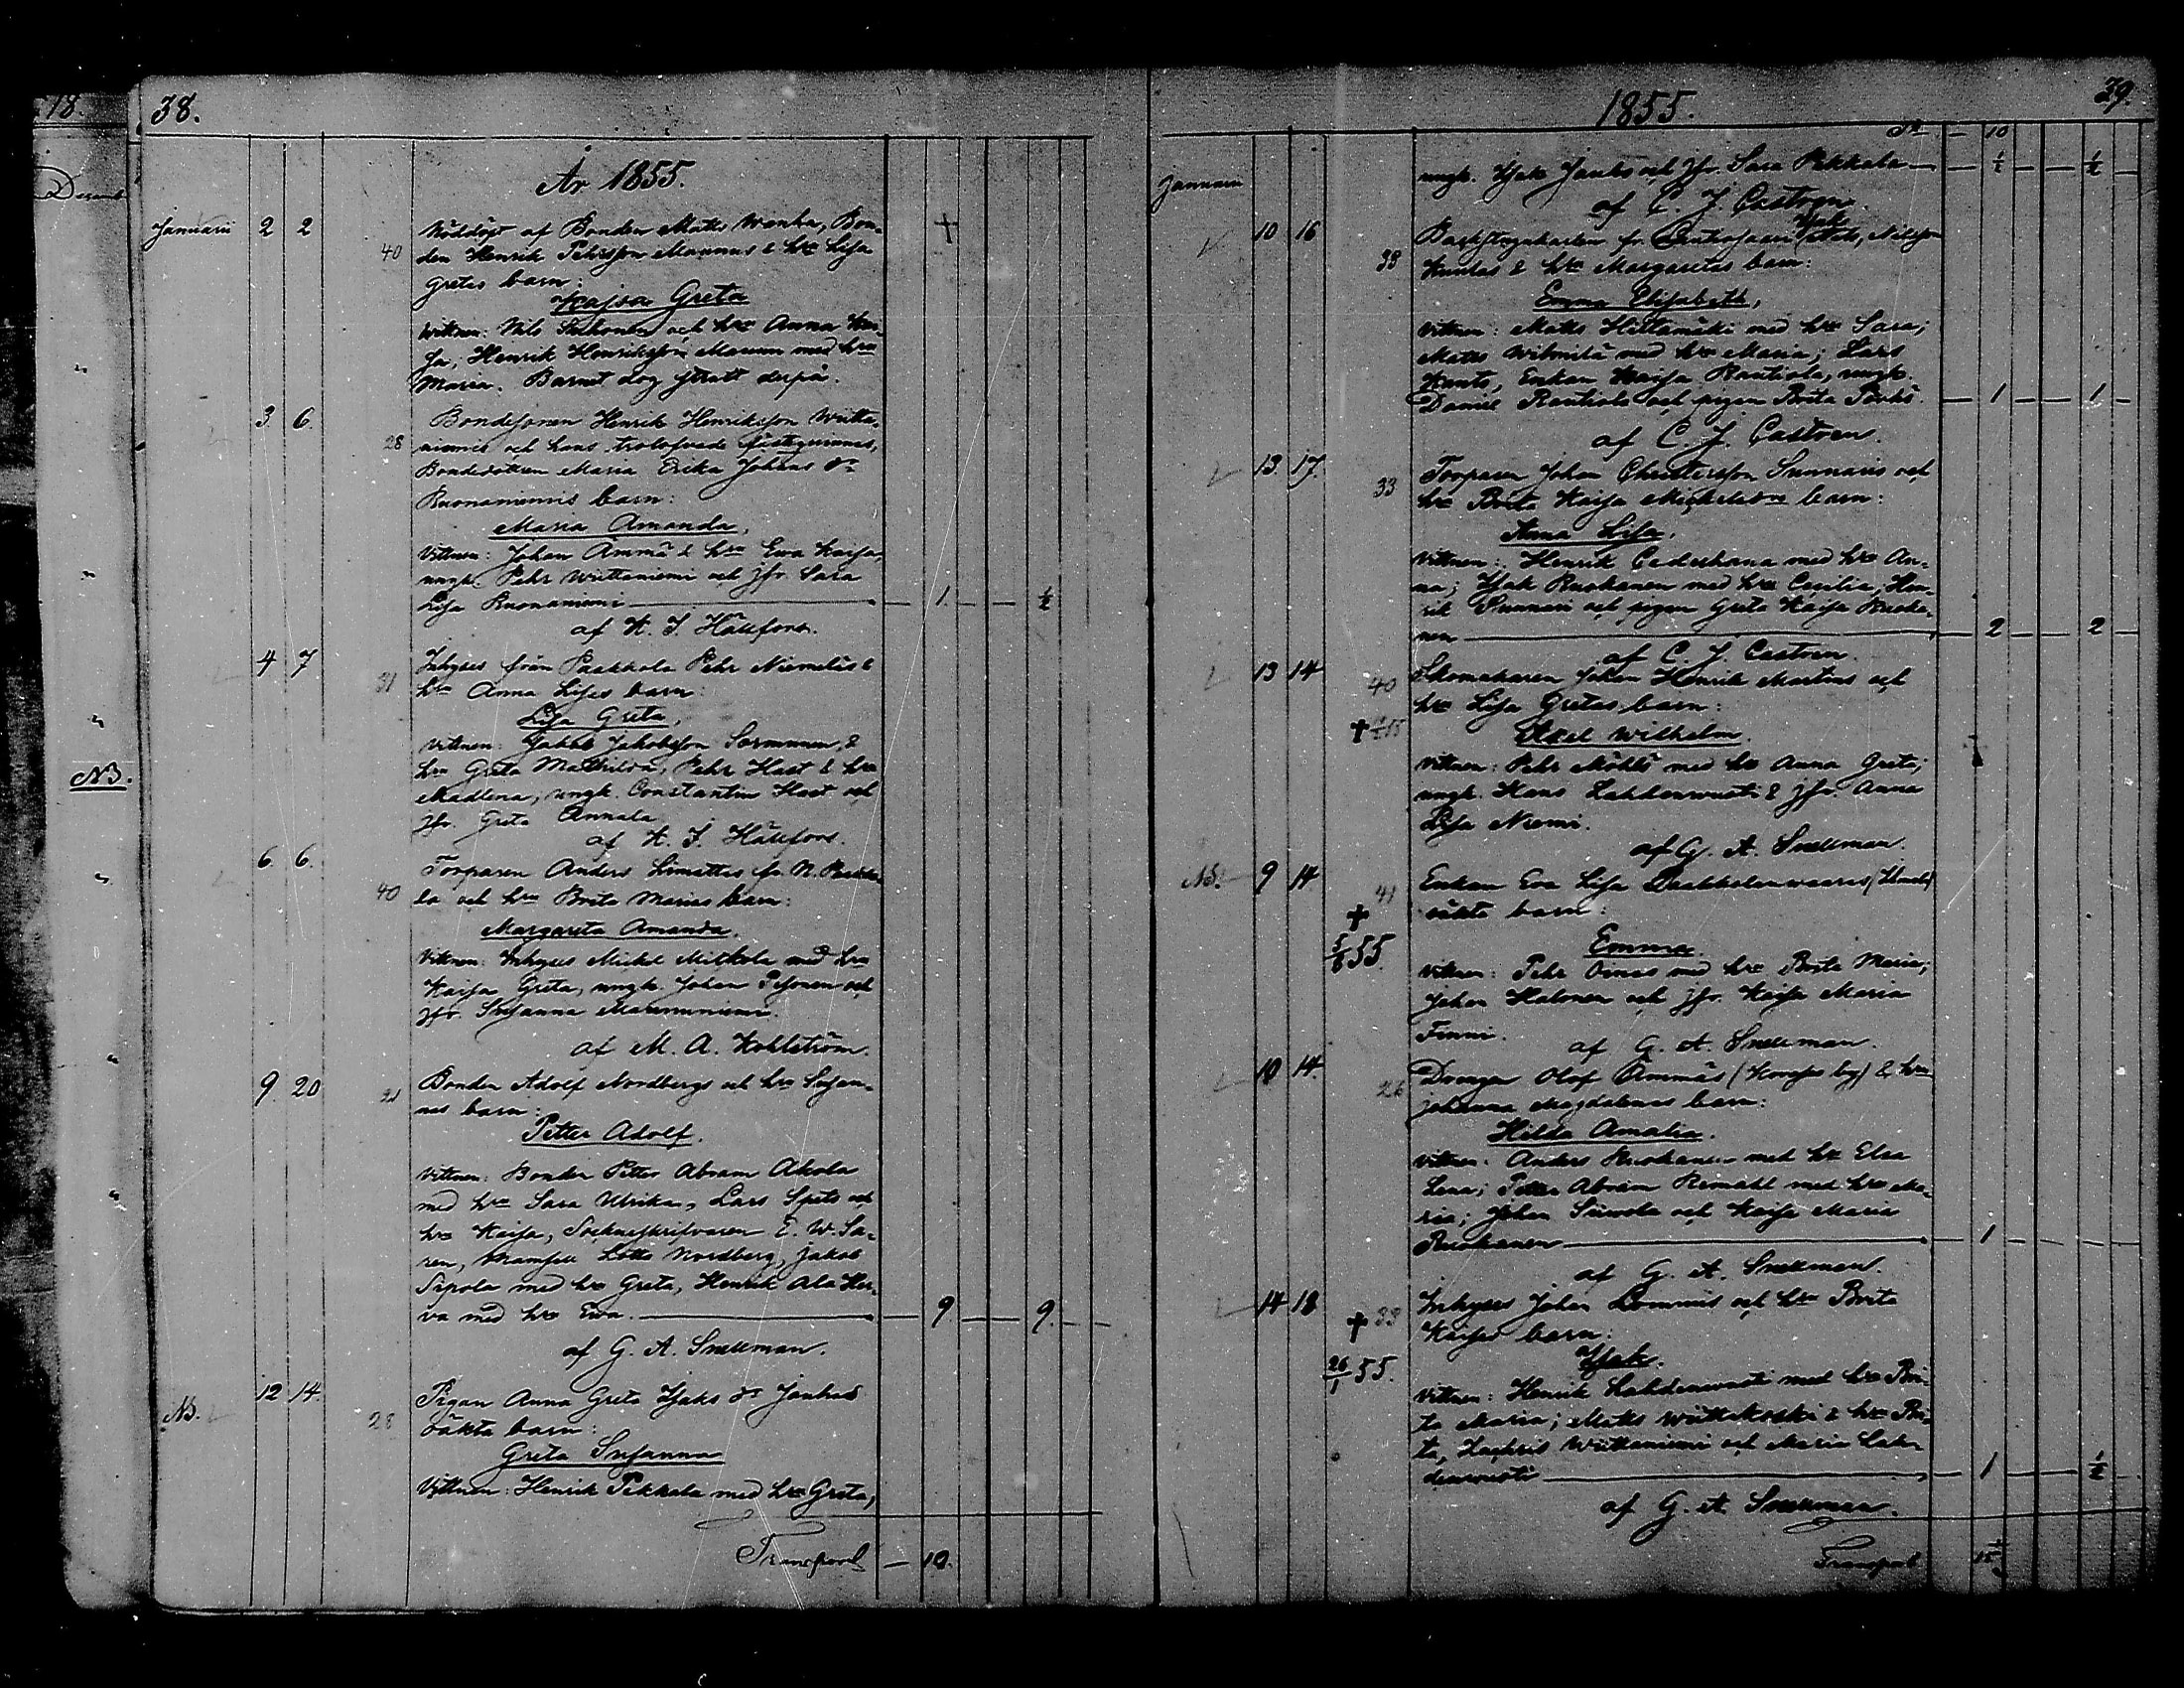 18.
Decemb
NB.
38.
År 1855.
Januarii 2 2 40 Nöddöpt af Bonden Matts Wanha, Bon-
den Henrik Pehrsson Maunus & hu Lisa
Gretas barn:
Kajsa Greta
Wittnen: Nils Suhonen och hu Anna Kaj-
sa, Henrik Henriksson Maunu med hu
Maria. Barnet dog strax derpå.
3 6 28 Bondesonen Henrik Henriksson Wuitta-
niemis och hans trolofvade fästeqvinnas,
Bondedottren Maria Erika Johans dr
Ruonaniemis barn:
Maria Amanda,
Vittnen: Johan Ämmä & hu Ewa Kaisa,
ungk. Pehr Wuittaniemi och jfr. Sara
Lisa Ruonaniemi — 1. — ½
af K. I. Hällfors.
4 7 31 Inhyses från Paakkola Pehr Niemeläs &
hu Anna Lisas barn:
Lisa Greta,
Vittnen: Jakob Jakobsson Sormunen, &
hu Greta Mathilda, Pehr Hast & hu
Madlena, ungk. Constantin Hast och
jfr. Greta Annala
af K. I. Hällfors.
6 6. 40 Torparen Anders Limattas fr. N. Paakko-
la och hu Brita Marias barn:
Margareta Amanda.
Vittnen: Inhyses Mickel Mikkola med hu
Kaisa Greta, ungk. Johan Pesonen och
jfr. Susanna
af M. A. Wohlström.
9. 20 21 Bonden Adolf Nordbergs och hu Susan-
nas barn:
Petter Adolf.
Vittnen: Bonden Petter Abram Akola
med hu Sara Ulrika, Lars Spets och
hu Kaisa, Socknesskrifvaren E. W. Sa-
ren, Mamsell Lotta Nordberg, Jakob
Sipola med hu Greta, Henrik Ala Her-
va med hu Ewa. — 9. — 9.
af G. A. Snellman.
NB. 12 14. 28 Pigan Anna Greta Isaks dr Jankas
oäkta barn:
Greta Susanna
Vittnen: Henrik Pekkala med hu Greta,
Transport — 10.
1855.
39.
Tr — 10
Januarii ungk. Isak Janka och jfr. Sara Pekkala — ½ — ½
af C. J. Castren.
10 16 38 Backstugukarlen fr. Isak Nilsson
Kuntas & hu Margaretas barn:
Emma Elisabeth,
Vittnen: Matts Hiltamäki med hu Sara;
Matts med hu Maria; Lars
Kunto, Enkan Kaisa Rautiola, ungk.
Daniel Rautiola och pigan Brita — 1 — 1
af C. J. Castren.
13. 17. 33 Torparen Johan Christersson Sunnaris och
hu Brita Kaisa Mickelsdrs barn:
Anna Lisa.
Vittnen: Henrik med hu An-
na; Isak Ruokanen med hu Cecilia, Hen-
rik Sunnari och pigan Greta Kaisa Ruoka-
nen — 2 — 2
af C. J. Castren.
13 14 40 Skomakaren Johan Henrik Martins och
hu Lisa Gretas barn:
Axel Wilhelm.
Vittnen: Pehr med hu Anna Greta;
ungk. Hans Lahdenwesti & jfr. Anna
Lisa Niemi.
af G. A. Snellman.
NB. 9 14 41 Enkan Eva Lisa
† oäkta barn:
5/8 55. Emma.
Vittnen: Pehr Oinas med hu Brita Maria;
Johan Halonen och jfr. Kaisa Maria
Finni.
af G. A. Snellman.
10 14. 26 Drengen Olof Ämmäs & hu
Johanna Magdalenas barn:
Hilda Amalia.
Vittnen: Anders Ruokanen med hu Elsa
Lena; Petter Abram Remahl med hu Ma-
ria; Johan och Kaisa Maria
Ruokanen — 1
af G. A. Snellman.
14 18 † 33 Inhyses Johan Lommis och hu Brita
Kaisas barn:
26/1 55. Isak.
Vittnen: Henrik Lahdenwesti med hu Bri-
ta Maria; Matts Wuittakoski & hu Bri-
ta, Zachris Wuittaniemi och Maria Lah-
denwesti — 1 — ½
af G. A. Snellman.
Transport